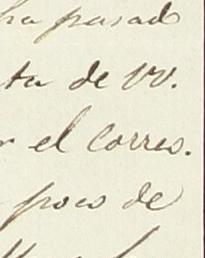 ha pasad
ta de VV.
r el correo.
poco de